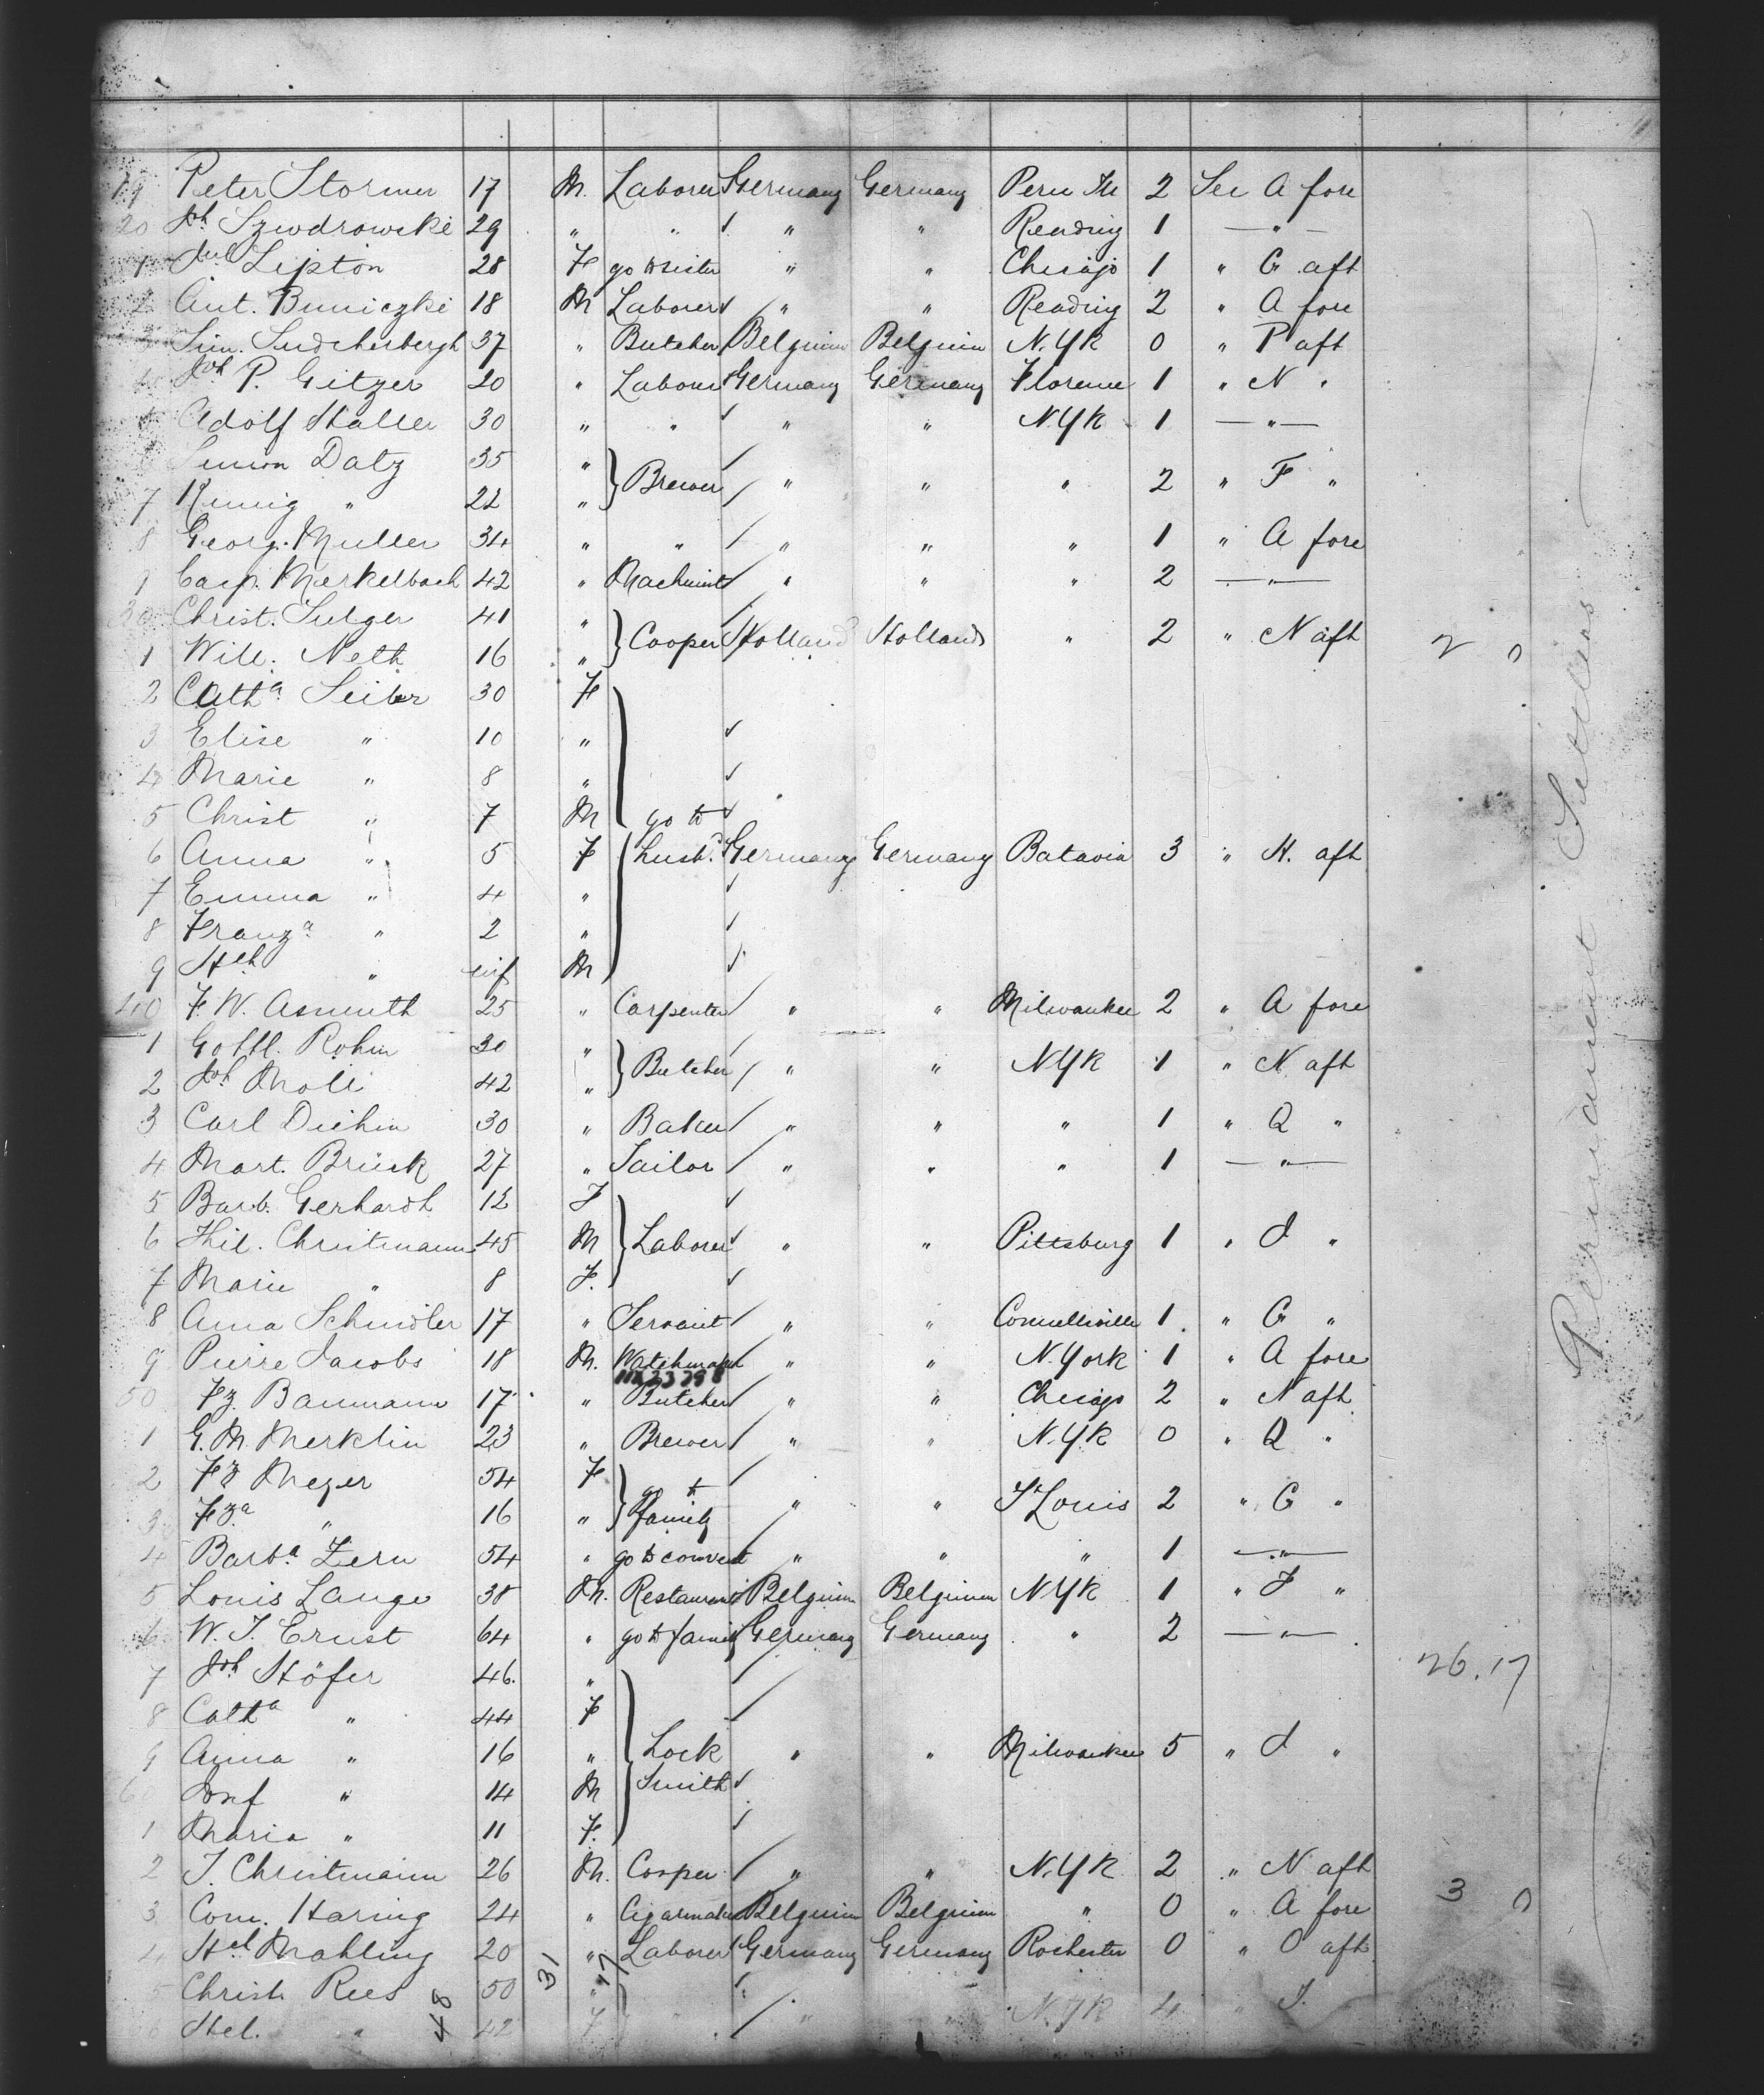 19 Peter Stormer 17 M. Laborer Germany Germany Peru Ill 2 See A fore
20 Joh Szwdrowski 29 " " " " Reading 1 — " —
1 Jul Lipton 28 F go to sister " " Chicago 1 " G aft
2 Ant. Buniczki 18 M Laborer " " Reading 2 " A fore
3 Sim. 37 " Butcher Belgium Belgium N.YK 0 " P aft
4 Joh P. Gitzer 20 " Laborer Germany Germany Florence 1 " N "
5 Adolf Haller 30 " " " " N.YK 1 — " —
6 Simon Datz 35 "
Brewer " " " 2 " F "
7 " 22 "
8 Georg. Muller 34 " " " " " 1 " A fore
9 Casp. Merkelbach 42 " Machinist " " " 2 — " —
30 Christ. Sulger 41 "
Cooper Holland Holland " 2 " N aft 2 0
1 Will. Neth 16 "
2 Cath a Seiber 30 F
3 Elise " 10 "
4 Marie " 8 "
5 Christ " 7 M go to
6 Anna " 5 F husb. Germany Germany Batavia 3 " H. aft
7 Emma " 4 "
8 Franz a " 2 "
9 Hch " inf M
40 F. W. Asmuth 25 " Carpenter " " Milwaukee 2 " A fore
1 Gottl. Rohm 30 "
Butcher " " N.YK 1 " N aft
2 Joh Moli 42 "
3 Carl Diehm 30 " Baker " " " 1 " Q "
4 Mart. Brück 27 " Tailor " " " 1 — " —
5 Barb. Gerhardt 12 F
6 Phil. Christmann 45 M Laborer " " Pittsburg 1 " J "
7 Marie " 8 F.
8 Anna Schindler 17 " Servant " " Connellsville 1 " G "
9 Pierre Jacobs 18 M. Watchmaker " " N.York 1 " A fore
50 Fz. Baumann 17 " Butcher " " Chicago 2 " N aft
1 G. M. Merklin 23 " Brewer " " N.YK 0 " Q "
2 Fz Meyer 54 F go to
family " " St Louis 2 " G "
3 Fz.a " 16 "
4 Barb.a Zern 54 " go to convent " " " 1 — " —
5 Louis Lange 38 M. Restaurant Belgium Belgium N.YK 1 " J "
6 W. J. Ernst 64 " go to family Germany Germany " 2 — " —
7 Joh Höfer 46. " 26.17
8 Cath a " 44 F
9 Anna " 16 " Lock " " Milwaukee 5 " J "
60 Josef " 14 M Smith
1 Maria " 11 F.
2 J. Christmann 26 M. Cooper " " N.YK 2 " N aft
3 Corn. Haring 24 " Cigarmaker Belgium Belgium " 0 " A fore 3 0
4 Hel Mahling 20 " Laborer Germany Germany Rochester 0 " O aft
5 Christ. Rees 50 "
Hel. " 42 F " " " N.YK 4 " J.
48
31
17
Permanent Settlers